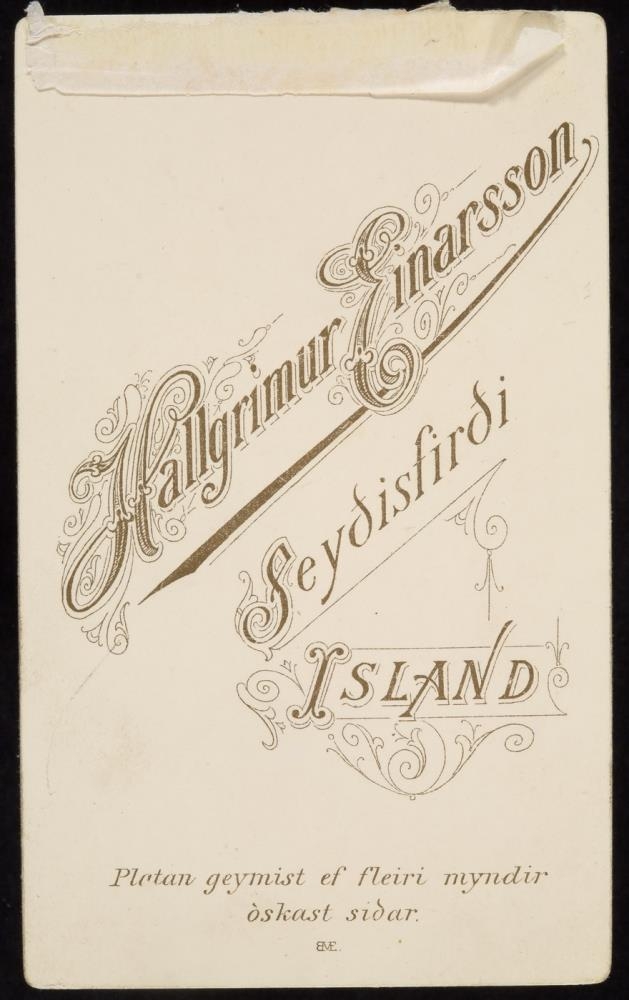 Hallgrímur Einarsson
Seyðisfirði
ISLAND
Platan geymist ef fleiri myndir
òskast siðar.